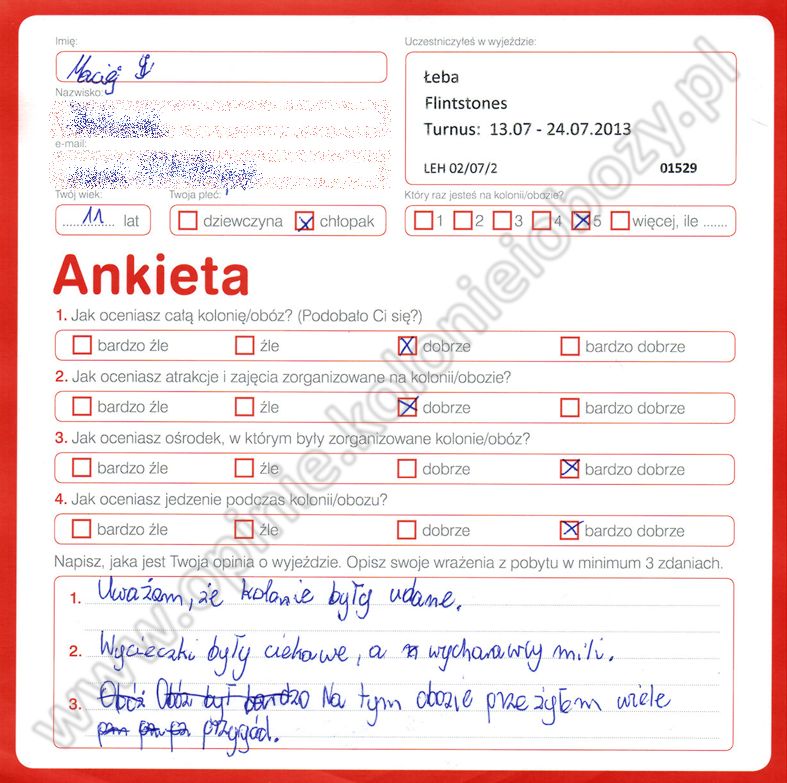 Imię:
Maciej
Nazwisko:
e-mail:
Uczestniczyłeś w wyjeździe:
Łeba
Flintstones
Turnus: 13.07 - 24.07.2013
LEH 02/07/2 01529
Twój wiek: Twoja płeć: Który raz jesteś na kolonii/obozie?
11 lat dziewczyna chłopak 1 2 3 4 5 więcej, ile .......
Ankieta
1. Jak oceniasz całą kolonię/obóz? (Podobało Ci się?)
bardzo źle źle dobrze bardzo dobrze
2. Jak oceniasz atrakcje i zajęcia zorganizowane na kolonii/obozie?
bardzo źle źle dobrze bardzo dobrze
3. Jak oceniasz ośrodek, w którym były zorganizowane kolonie/obóz?
bardzo źle źle dobrze bardzo dobrze
4. Jak oceniasz jedzenie podczas kolonii/obozu?
bardzo źle źle dobrze bardzo dobrze
Napisz, jaka jest Twoja opinia o wyjeździe. Opisz swoje wrażenia z pobytu w minimum 3 zdaniach.
1. Uważam, że kolonie były udane.
2. Wycieczki były ciekawe, a wychawawcy mili.
3. Obóz Obóz był bardzo Na tym obozie przeżyłem wiele
przygód.
www.opinie.kolonieiobozy.pl